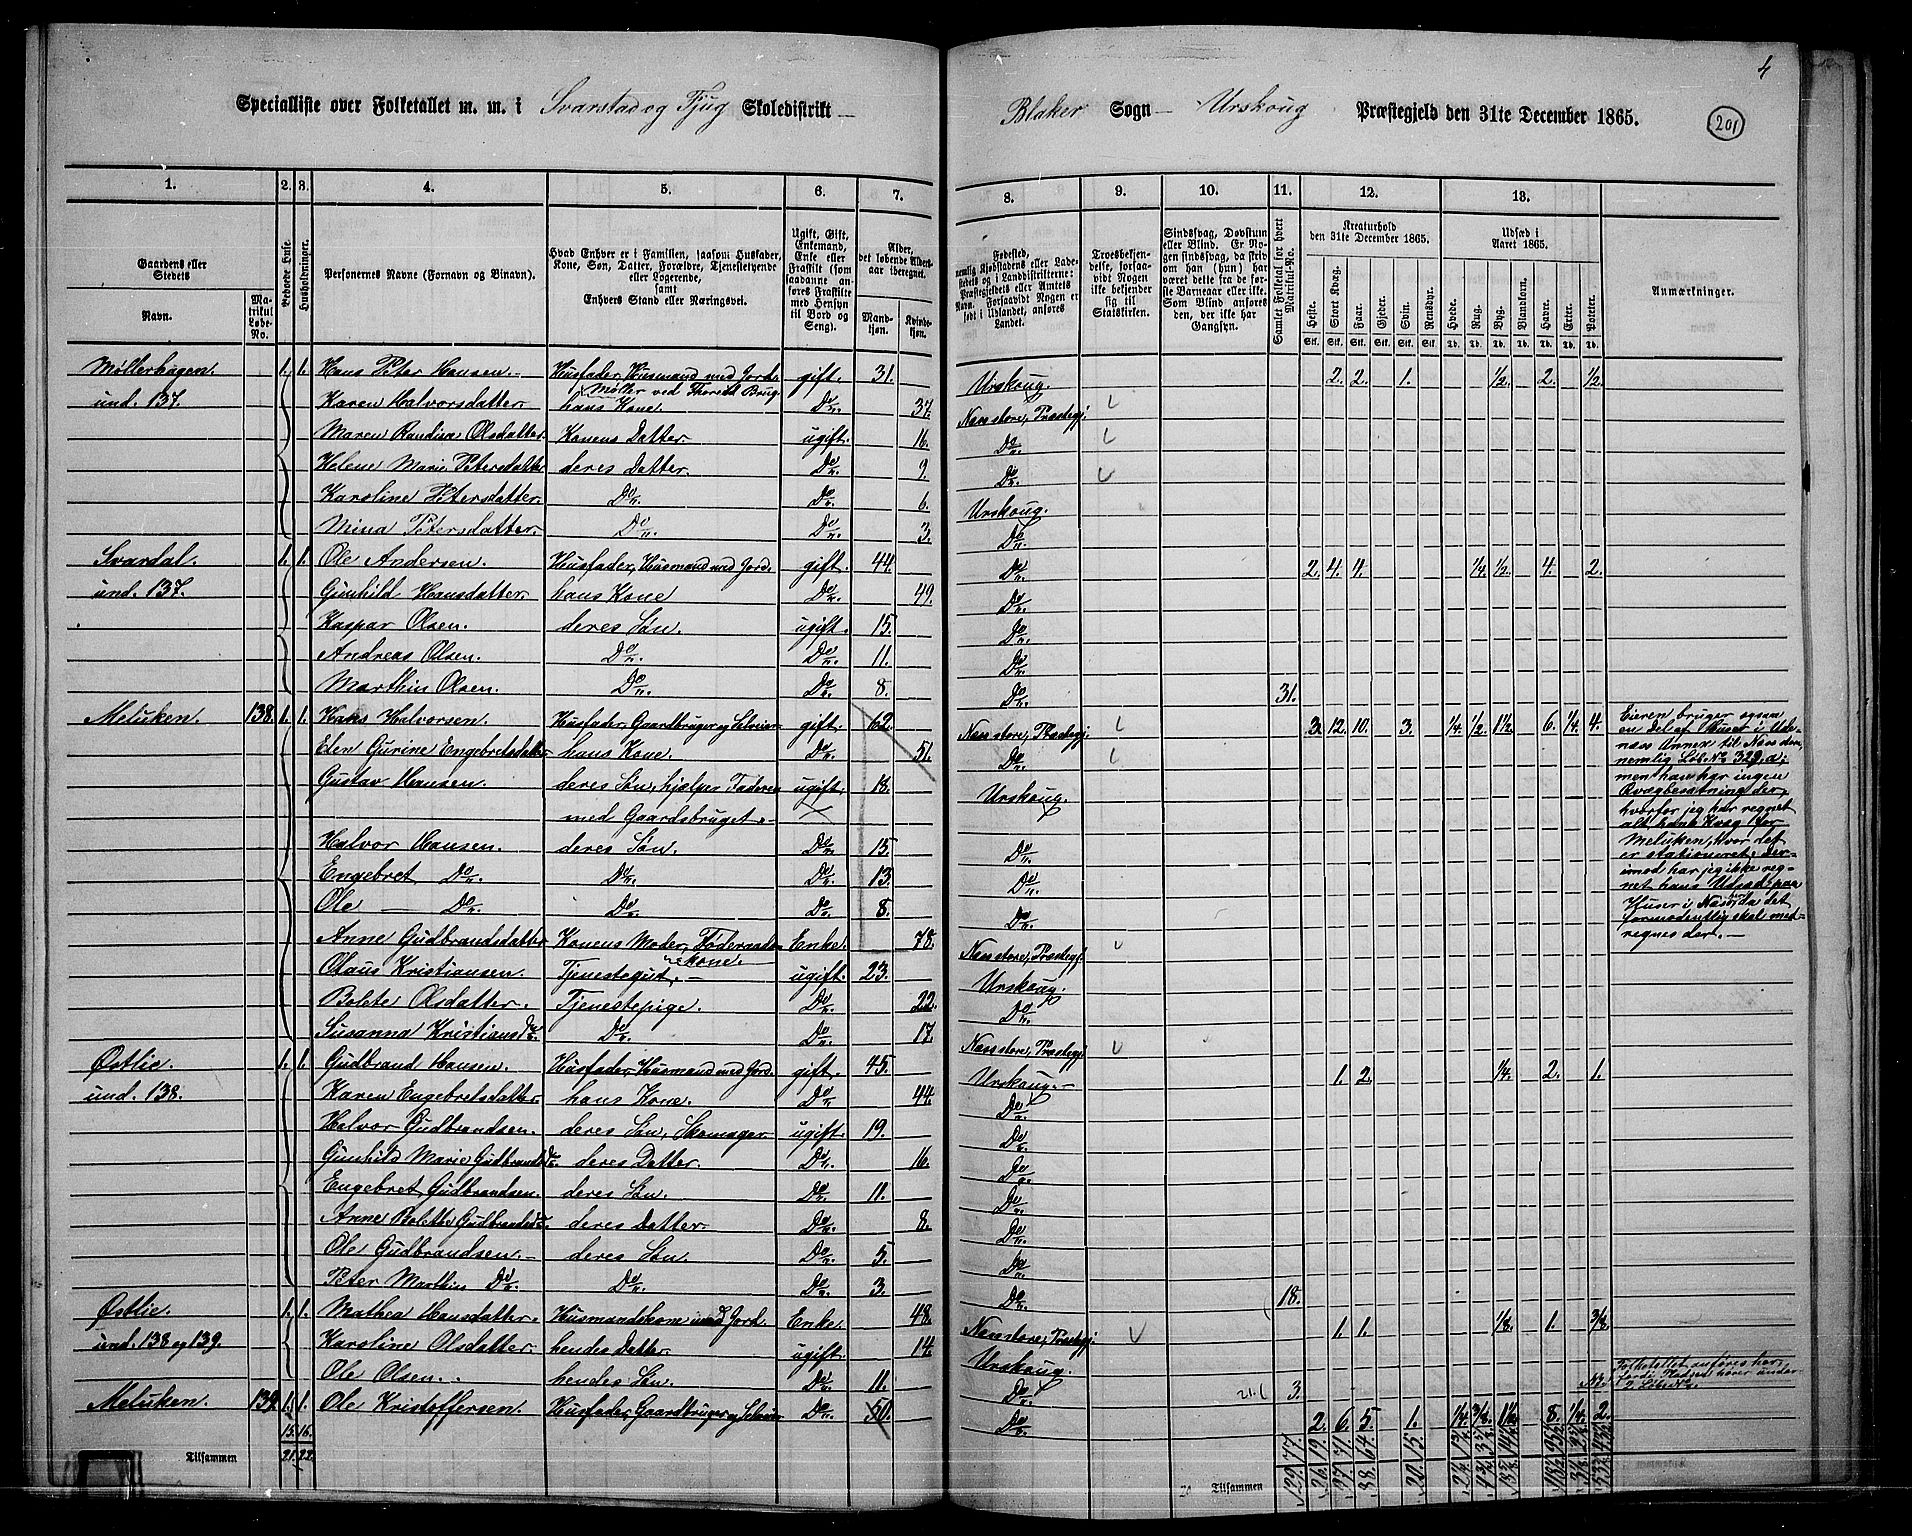 4
Specialliste over Folketallet m. m. i Svarstad og Tjug Skoledistrikt
Blaker Sogn Urskoug Præstegjeld den 31te December 1865.
201
1. 2. 3. 4. 5. 6. 7. 8. 9. 10. 11. 12. 13.
Gaardens eller Stedets Navn.
Matrikul Løbe-No.
Beboede Huse.
Husholdninger.
Personernes Navne (Fornavn og Binavn).
Hvad Enhver er i Familien, saasom Husfader, Kone, Søn, Datter, Forældre, Tjenestetyende eller Logerende, samt Enhvers Stand eller Næringsvei.
Ugift, Gift, Enkemand, Enke eller Fraskilt (som saadanne anføres Fraskilte med Hensyn til Bord og Seng).
Alder, det løbende Aldersaar iberegnet.
Mandkjøn. Kvindekjøn.
Troesbekjendelse, forsaavidt Nogen ikke bekjender sig til Statskirken.
Sindssvag, Døvstum eller Blind. Er Nogen sindssvag, da skriv om han (hun) har været dette fra de første Barneaar eller ikke. Som Blind anføres den, der ikke har Gangsyn.
Samlet Folketal for hvert Matrikul-No.
Kreaturhold den 31te December 1865.
Heste. Stort Kvæg. Faar. Gjeder. Sviin. Rensdyr.
Udsæd i Aaret 1865.
Hvede. Rug. Byg. Blandkorn. Havre. Erter. Poteter.
Anmærkninger.
Møllerhagen. 1. 1. Hans Peter Hansen. Husfader, Husmand med Jord. gift. 31. Urskoug. 2. 2. 1. ½. 2. ½.
Møller ved Brug.
und. 137. Karen Halvorsdatter. hans Kone Do. 37. Næs store, Præstegj.
Maren Randine Olsdatter. Konens Datter ugift. 16. Do.
Helene Marie Petersdatter deres Datter. Do. 9. Do.
Karoline Petersdatter. Do. Do. 6. Urskoug.
Mina Petersdatter. Do. Do. 3. Do.
Svardal. 1. 1. Ole Andersen. Husfader, Husmand med Jord. gift. 44. Do. 2. 4. 11. ¼. ½. 4. 2.
und. 137. Gunhild Hansdatter. hans Kone Do. 49. Do.
Kaspar Olsen. deres Søn. ugift. 15. Do.
Andreas Olsen. Do. Do. 11. Do.
Marthin Olsen. Do. Do. 8. Do. 31.
Meluken. 138. 1. 1. Hans Halvorsen. Husfader, Gaardbruger og Selveier gift. 62. Næs store, Præstegj. 3. 12. 10. 3. ¼. ½. 1½. 6. ¼. 4.
Elen Gurine Engebretsdatter hans Kone. Do. 51. Do.
Gustav Hansen. deres Søn, hjælper Faderen ugift. 18. Urskoug.
med Gaardsbruget.
Halvor Hansen. deres Søn. Do. 15. Do.
Engebret Do. Do. Do. 13. Do.
Ole Do. Do. Do. 8. Do.
Anne Gudbrandsdatter Konens Moder, Føderaads- Enke. 78. Næs store, Præstegj.
kone.
Olaus Kristiansen. Tjenestegut. ugift. 23. Urskoug.
Bolete Olsdatter. Tjenestepige. Do. 22. Do.
Susanna Kristiansdr. Do. Do. 17. Næs store, Præstegj.
Østlie. 1. 1. Gudbrand Hansen. Husfader, Husmand med Jord. gift. 45. Urskoug. 1. 2. ¼. 2. 1.
und. 138. Karen Engebretsdatter hans Kone. Do. 44. Do.
Halvor Gudbrandsen. deres Søn, Skomager. ugift. 19. Do.
Gunhild Marie Gudbrandsdr. deres Datter. Do. 16. Do.
Engebret Gudbrandsen. deres Søn. Do. 11. Do.
Anne Bolette Gudbrandsdr. deres Datter. Do. 8. Do.
Ole Gudbrandsen. deres Søn. Do. 5. Do.
Peter Marthin Do. Do. Do. 3. Do. 18.
Østlie. 1. 1. Mathea Hansdatter. Husmandskone med Jord. Enke. 48. Næs store, Præstegj. 1. 1. ⅛. 1. ⅜.
und. 138 og 139. Karoline Olsdatter hendes Datter ugift. 14. Urskoug.
Ole Olsen. hendes Søn. Do. 11. Do. 3.
Meluken. 139. 1. 1. Ole Kristoffersen. Husfader, Gaardbruger og Selveier Do. 50. Do. 2. 6. 5. 1. ¼. ⅜. 1½. 8. ¼. 2.
Eieren bruger ogsaa
en del af Huser i Ude-
næs Annex til Næs store,
nemlig Løb. No 329.a;
men han har ingen
Kvægbesætning der,
hvorfor jeg har regnet
alt hans Kvæg for
Meluken, hvor det
er stationeret; der-
imod har jeg ikke reg-
net hans Udsæd paa
Huser i Næs, da det
formodentlig skal med-
regnes der.
Folketallet anføres her,
fordi Pladsen hører under
2 Løbe No.
15. 16.
Tilsammen 21. 22.
Tilsammen